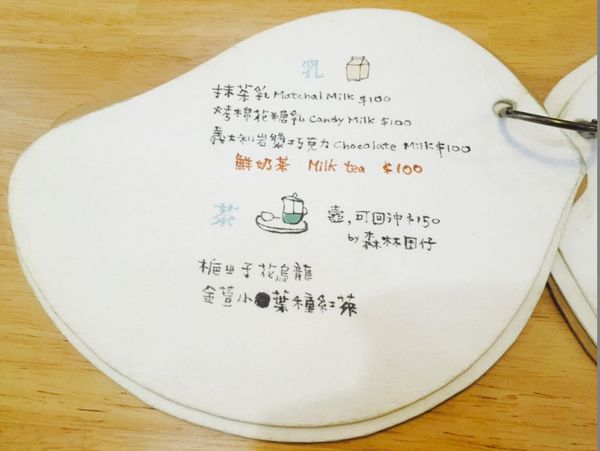 乳
抹茶乳 Matchal Milk $100
烤棉花糖乳 Candy Milk $100
義大利岩漿巧克力 Chocolate Milk $100
鮮奶茶 Milk tea $100
茶 壺,可回沖 $150
by 森林囝仔
梔子花烏龍
金萱小葉種紅茶